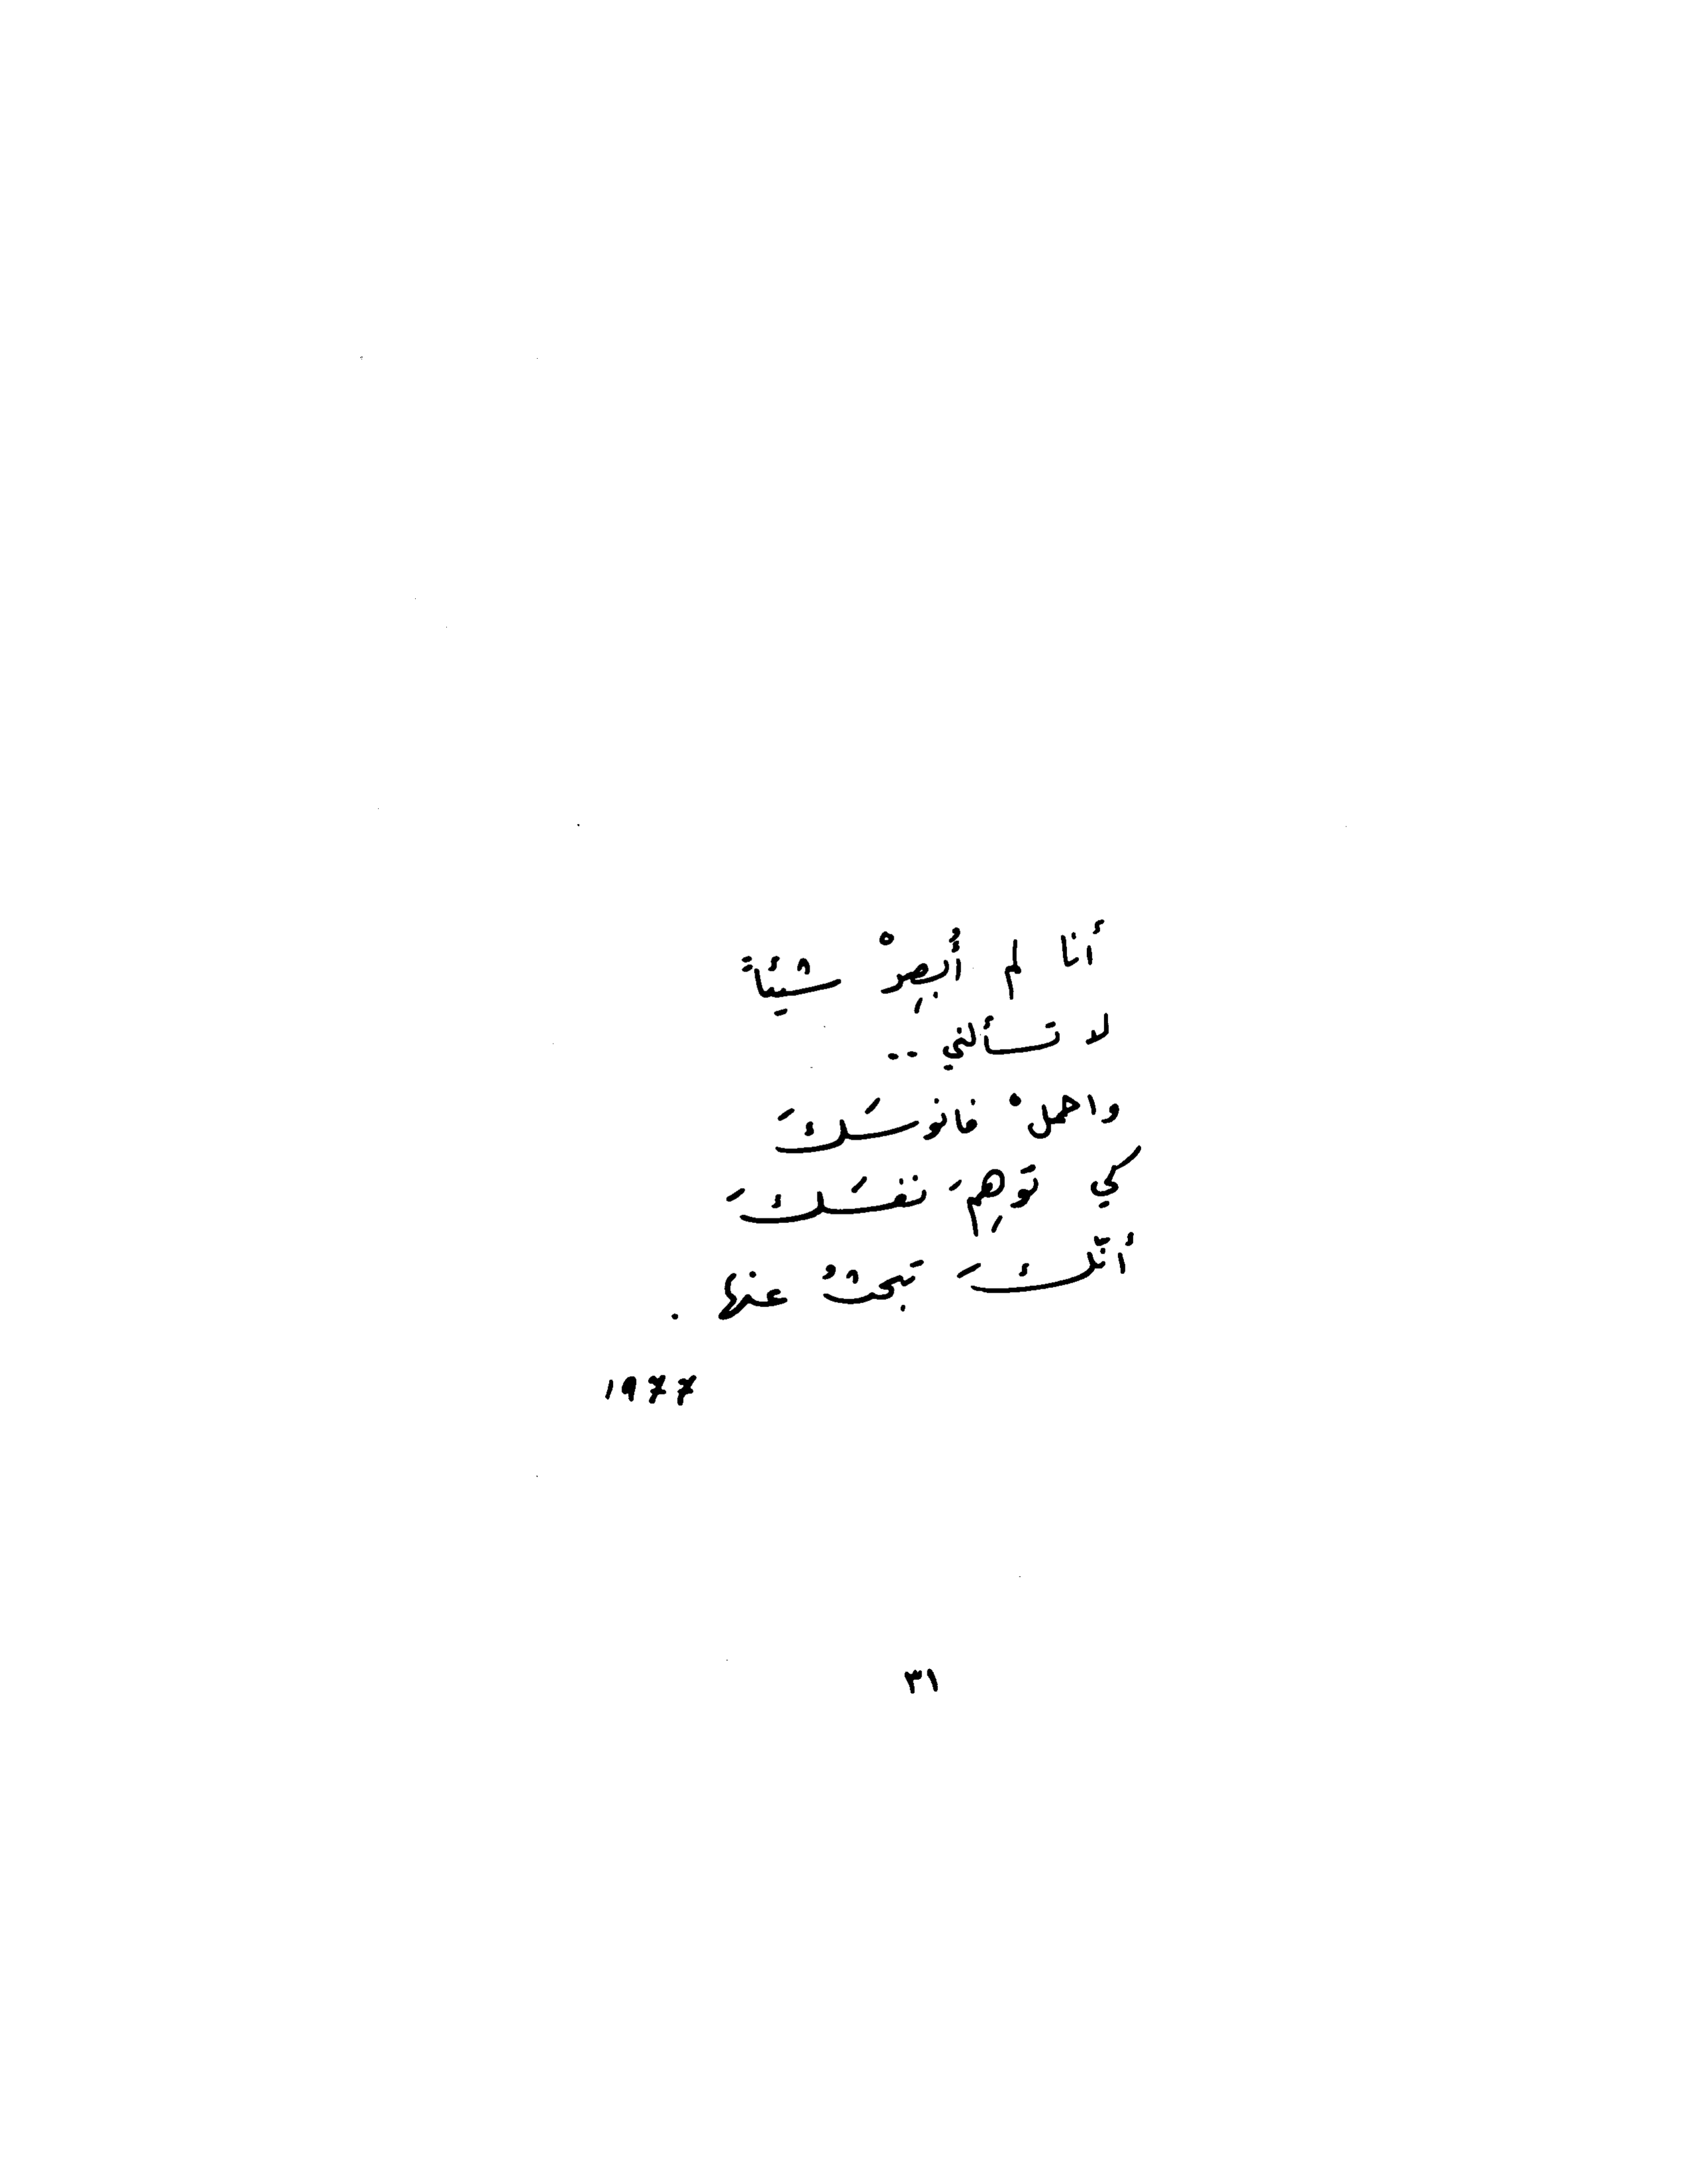 أنا لم أُبصِرْ شيئاً
لا تسألني ..
واحملْ فانوسَكَ
كي تَوهِمَ نفسَكَ
أنّكَ تَبحثُ عنها .
1977
٣١